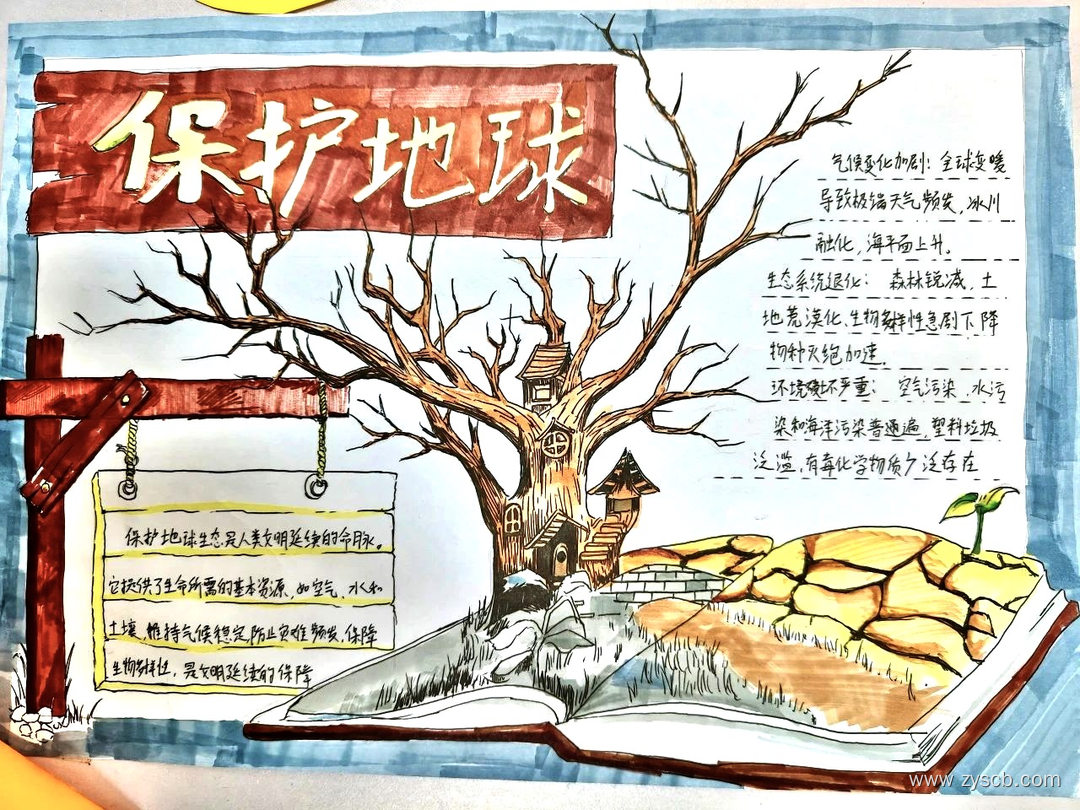 保护地球
气候变化加剧：全球变暖
导致极端天气频发，冰川
融化，海平面上升。
生态系统退化：森林锐减，土
地荒漠化、生物多样性急剧下降
物种灭绝加速。
环境破坏严重：空气污染，水污
染和海洋污染普通遍，塑料垃圾
泛滥，有毒化学物质广泛存在
保护地球生态是人类文明延续的命脉。
它提供了生命所需的基本资源，如空气、水和
土壤，维持气候稳定，防止灾难频发，保障
生物多样性，是文明延续的保障
www.zyscb.com